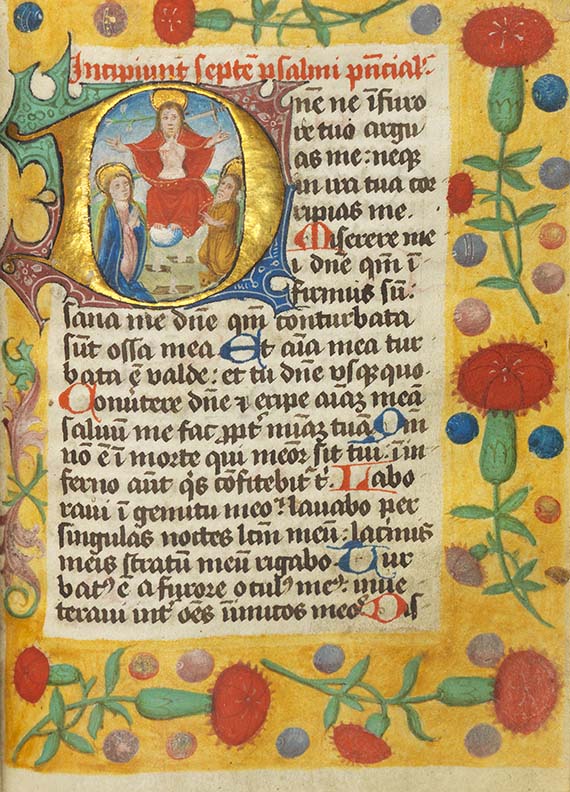 Incipiunt septē psalmi pn̄cial᷒.
Dn̄e ne ī furo
re tuo argu
as me : neqꝫ
in ira tua cor
ripias me.
Miserere me
i dn̄e qm̄ ī
firmus sū :
sana me dn̄e qm̄ conturbata
sūt ossa mea Et aīa mea tur
bata ē valde : et tu dn̄e vsqꝫ quo.
Conūtere dn̄e ⁊ eripe aīaꝫ meā
saluum me fac ꝓpt᷒ mīaꝫ tuā Qm̄
nō ē ī morte qui meor᷒ sit tui : ī in
ferno aūt qͥs cōfitebit᷒ t͛. Labo
raui ī gemitu meo : lauabo per
singulas noctes lt̄m meū : lacimis
meis stratū meū rigabo. Tur
batꝰ ē a furore oculꝰ meꝰ : inue
teraui int᷒ oēs īimicos meos Dis